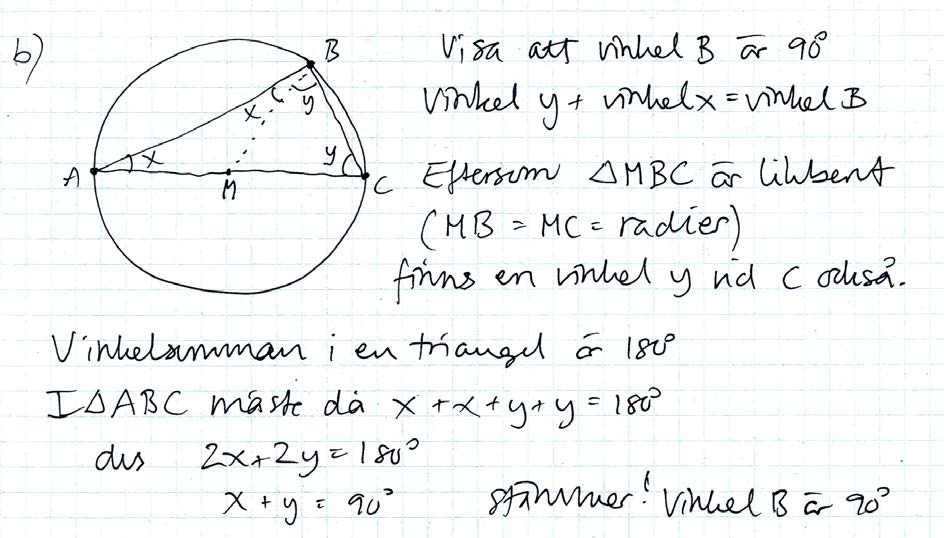 b)
B
x
y
x
y
A
M
C
Visa att vinkel B är 90°
Vinkel y + vinkel x = vinkel B
Eftersom △MBC är likbent
(MB = MC = radier)
finns en vinkel y vid C också.
Vinkelsumman i en triangel är 180°
I △ABC måste då x + x + y + y = 180°
dvs 2x + 2y = 180°
x + y = 90°
stämmer! Vinkel B är 90°